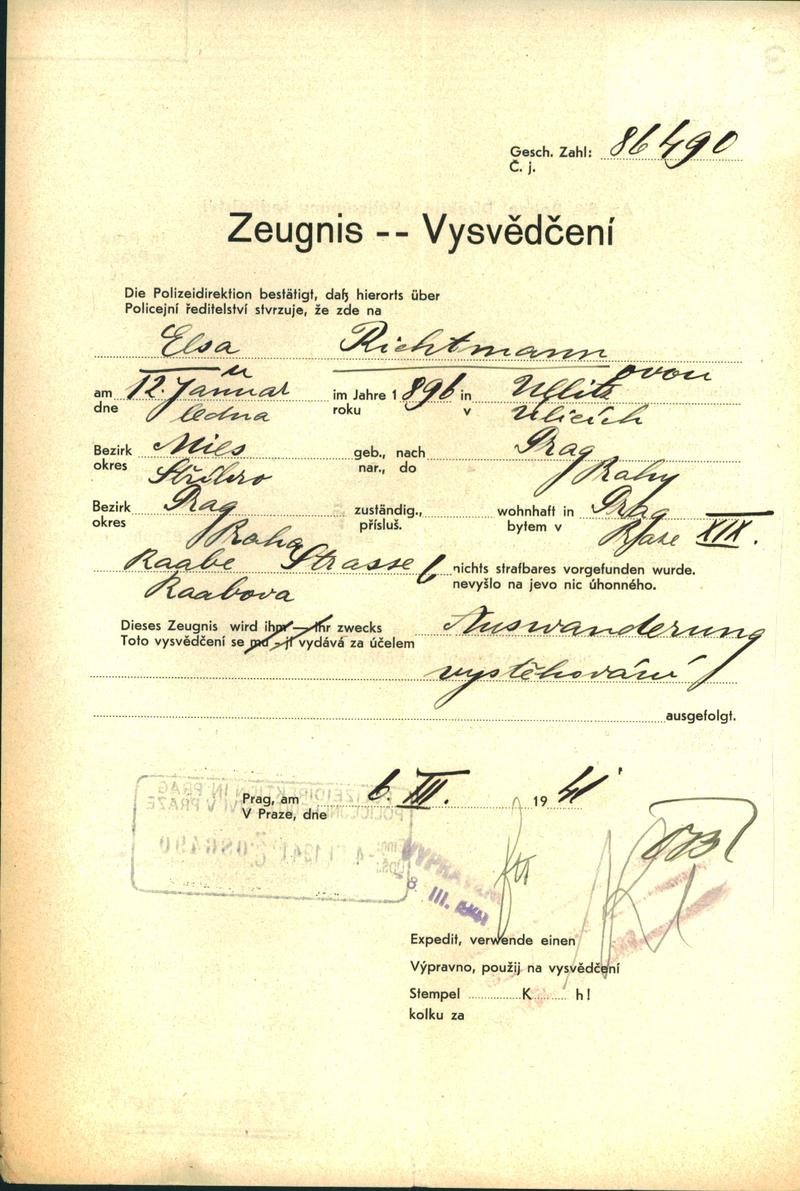 Gesch. Zahl: 86490
Č. j.
Zeugnis -- Vysvědčení
Die Polizeidirektion bestätigt, daß hierorts über
Policejní ředitelství stvrzuje, že zde na
Elsa Richtmann
ovou
am 12. Januar im Jahre 1896 in Ullitz
dne ledna roku v Ulicích
Bezirk Mies geb., nach Prag
okres Stříbro nar., do Prahy
Bezirk Prag zuständig., wohnhaft in Prag
okres Praha přísluš. bytem v Praze XIX.
Raabe Strasse 6 nichts strafbares vorgefunden wurde.
Raabova nevyšlo na jevo nic úhonného.
Dieses Zeugnis wird ihm — ihr zwecks Auswanderung
Toto vysvědčení se mu - jí vydává za účelem
vystěhování
ausgefolgt.
Prag, am 6. III. 1941
V Praze, dne
POLIZEIDIREKTION IN PRAG
POLICEJNÍ ŘEDITELSTVÍ V PRAZE
086490
VYPRAVENO
8. III. 1941
Expedit, verwende einen
Výpravno, použij na vysvědčení
Stempel K h!
kolku za